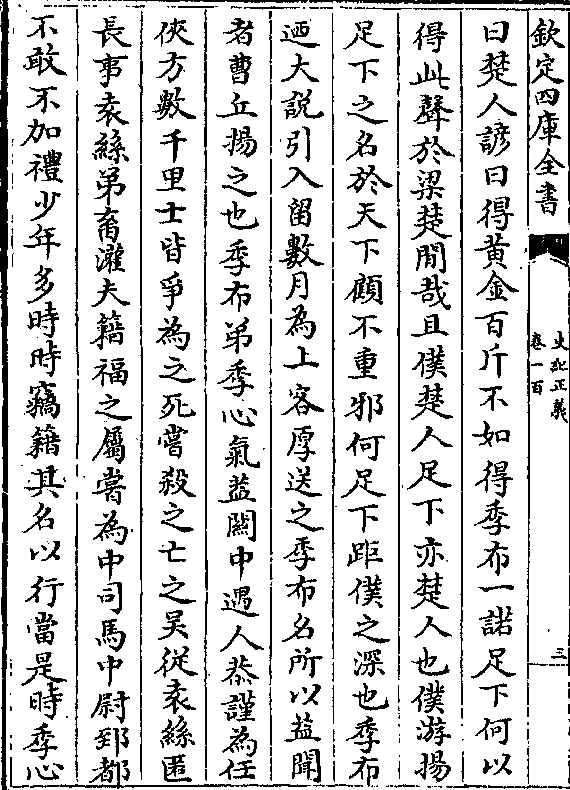 欽定四庫全書
史記正義
卷一百
三
曰楚人諺曰得黃金百斤不如得季布一諾足下何以
得此聲於梁楚間哉且僕楚人足下亦楚人也僕游揚
足下之名於天下顧不重邪何足下距僕之深也季布
迺大說引入留數月為上客厚送之季布名所以益聞
者曹丘揚之也季布弟季心氣蓋關中遇人恭謹為任
俠方數千里士皆爭為之死嘗殺之亡之吳從袁絲匿
長事袁絲弟畜灌夫籍福之屬嘗為中司馬中尉郅都
不敢不加禮少年多時時竊籍其名以行當是時季心